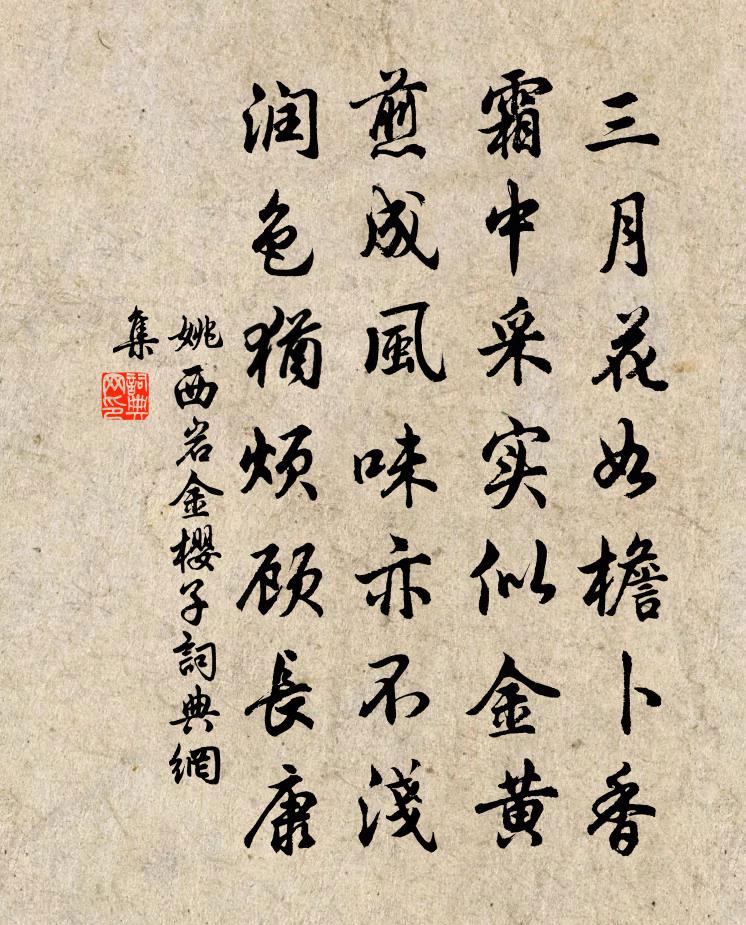 三月花如檐卜香
霜中采实似金黄
煎成風味亦不淺
润色犹烦顾長康
姚西岩金櫻子詞典網
集
詞典网印